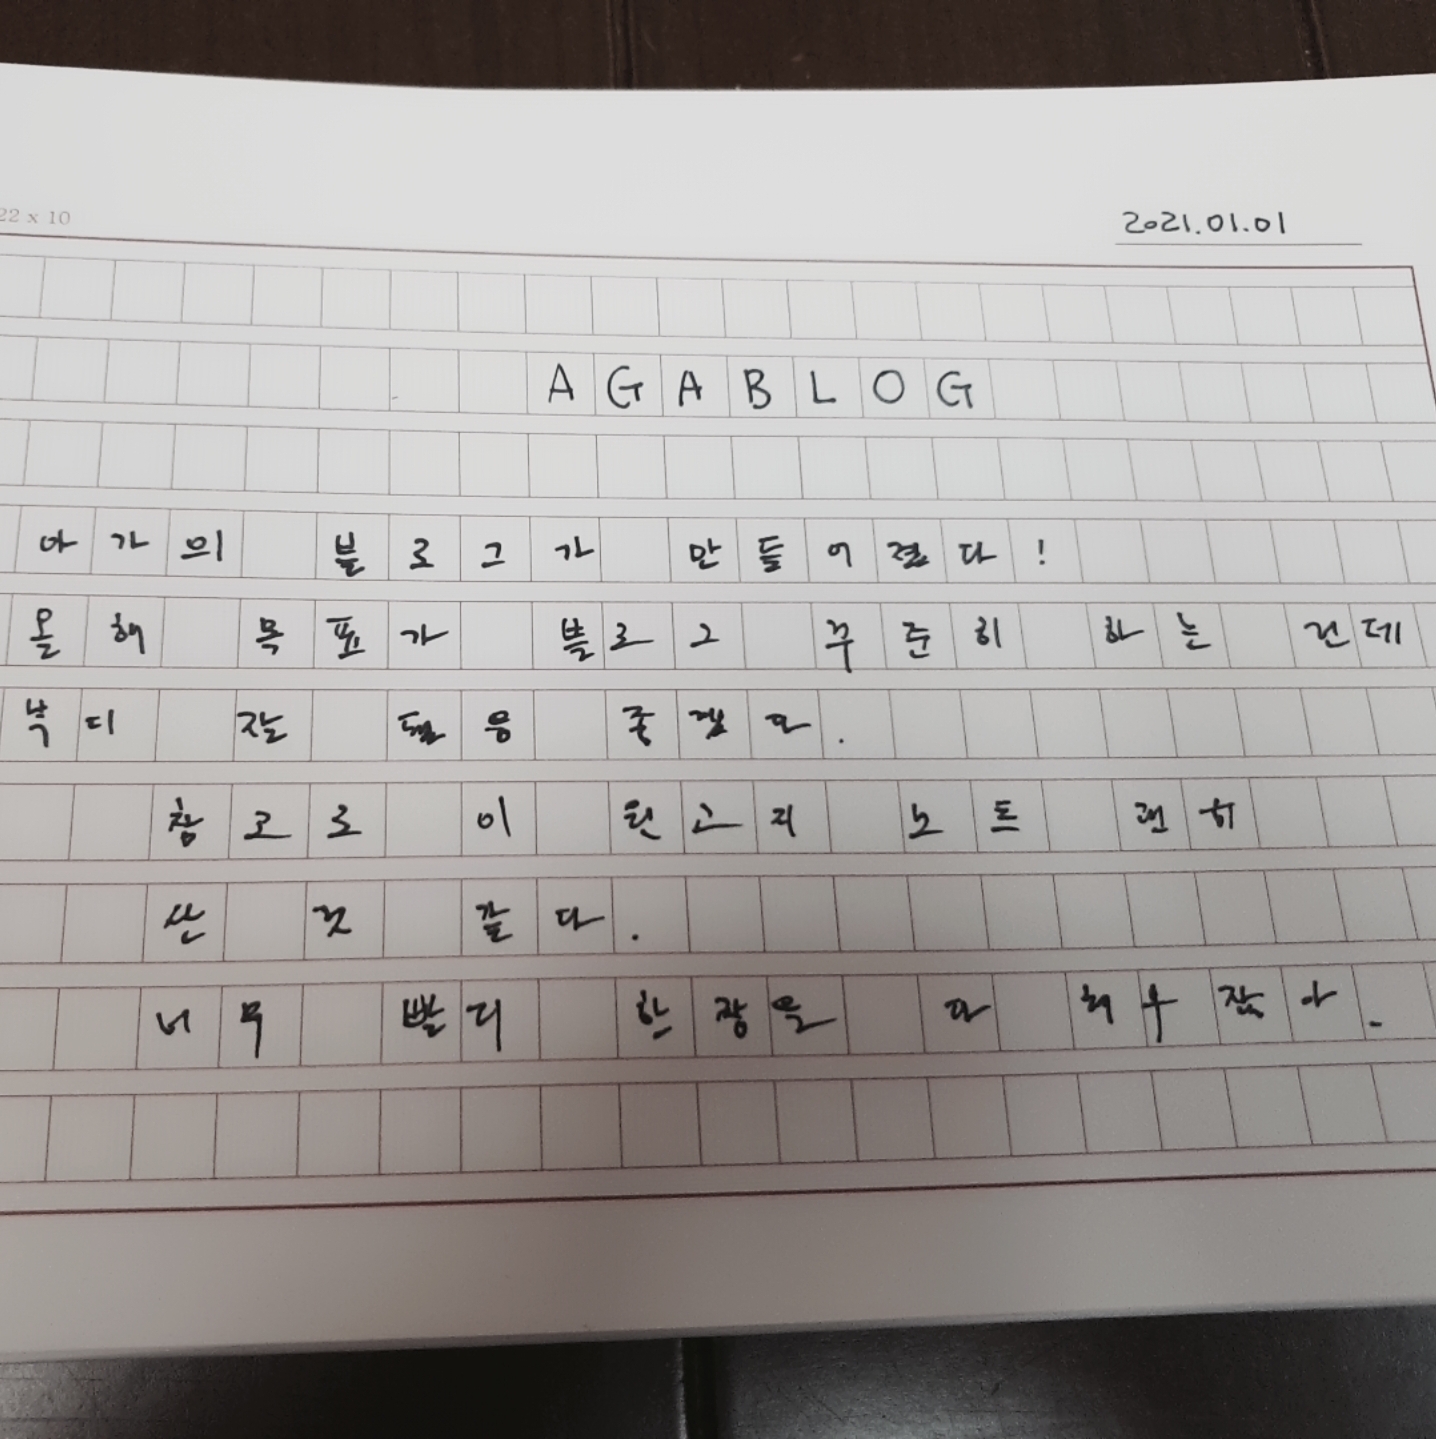 22 x 10
2021.01.01
AGABLOG
아가의 블로그가 만들어졌다!
올해 목표가 블로그 꾸준히 하는 건데
부디 잘 됐음 좋겠다.
참고로 이 원고지 노트 괜히
산 것 같다.
너무 빨리 한장을 다 채우잖아.